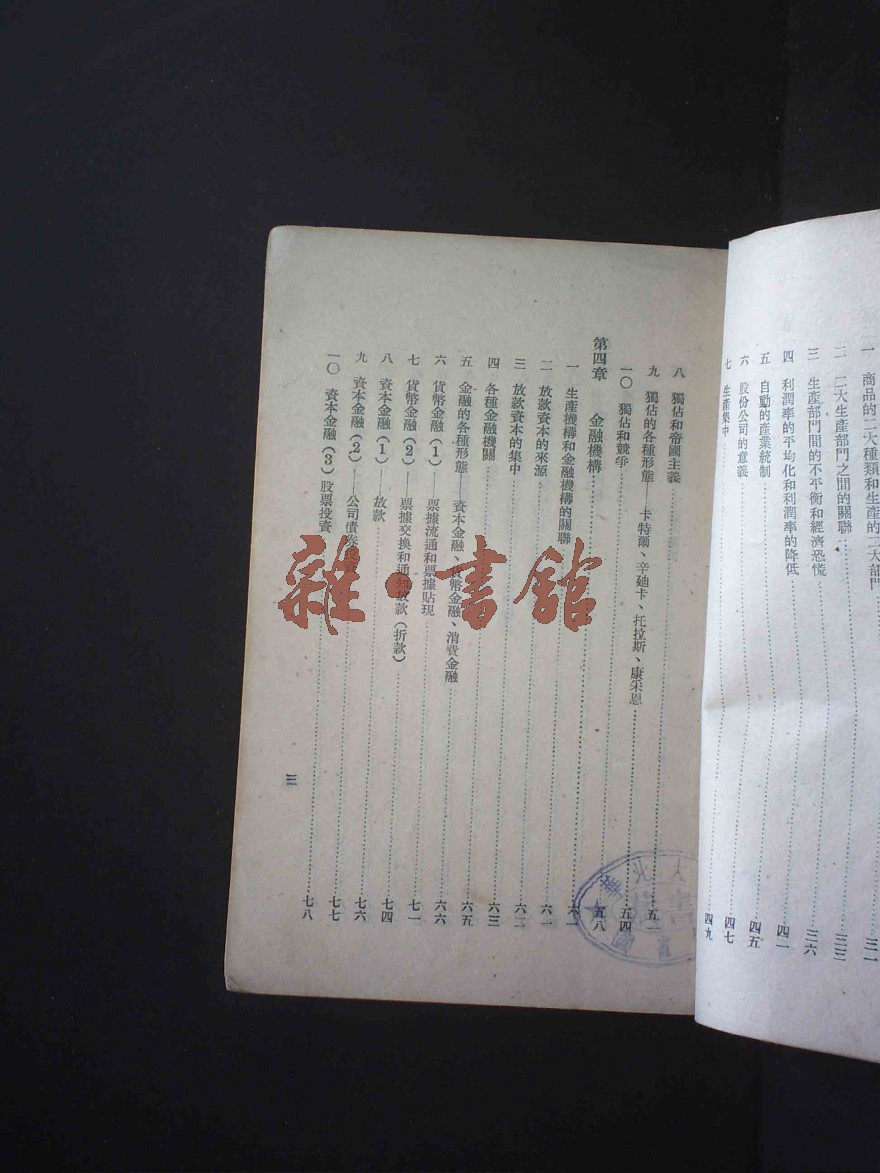 一 商品的二大種類和生產的二大部門……三一
二 二大生產部門之間的關聯……三三
三 生產部門間的不平衡和經濟恐慌……三六
四 利潤率的平均化和利潤率的降低……四二
五 自動的產業統制……四五
六 股份公司的意義……四七
七 生產集中……四九
八 獨佔和帝國主義……五一
九 獨佔的各種形態——卡特爾、辛廸卡、托拉斯、康采恩……五四
一〇 獨佔和競爭……五八
第四章 金融機構……六一
一 生產機構和金融機構的關聯……六一
二 放款資本的來源……六二
三 放款資本的集中……六三
四 各種金融機關……六五
五 金融的各種形態——資本金融、貨幣金融、消費金融……六六
六 貨幣金融(1)——票據流通和票據貼現……七一
七 貨幣金融(2)——票據交換和通知放款(折款)……七四
八 資本金融(1)——放款……七六
九 資本金融(2)——公司債券……七七
一〇 資本金融(3)股票投資……七八
三
雜·書館